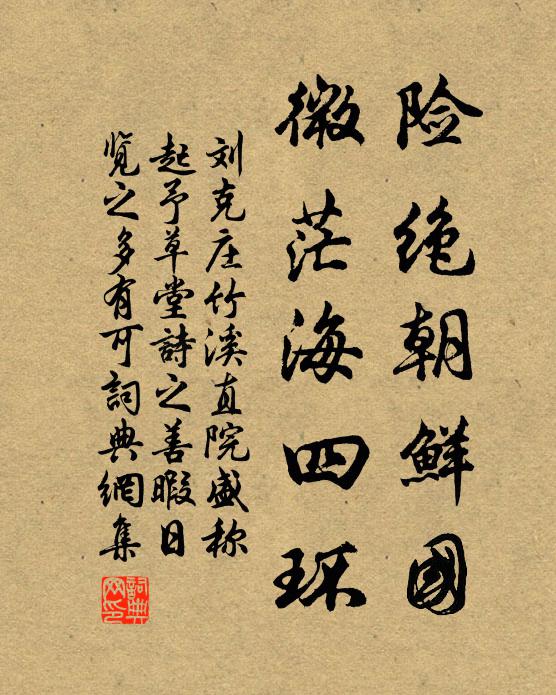 险绝朝鲜國
微茫海四环
刘克庄竹溪直院盛称
起予草堂詩之善暇日
览之多有可詞典網集
詞典网印